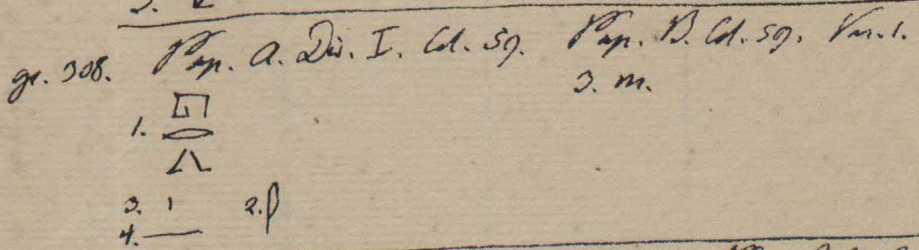 gr. 308. Pap. A. Div. I. Col. 59. Pap. B. Col. 59. Var. 1.
3. m.
1. 𓉔
𓂋
𓂻
3. 1 2.
4. —